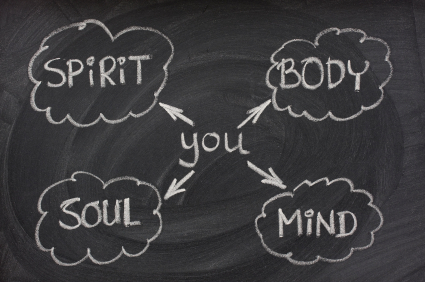 SPiRiT
BODY
you
SOUL
MiND